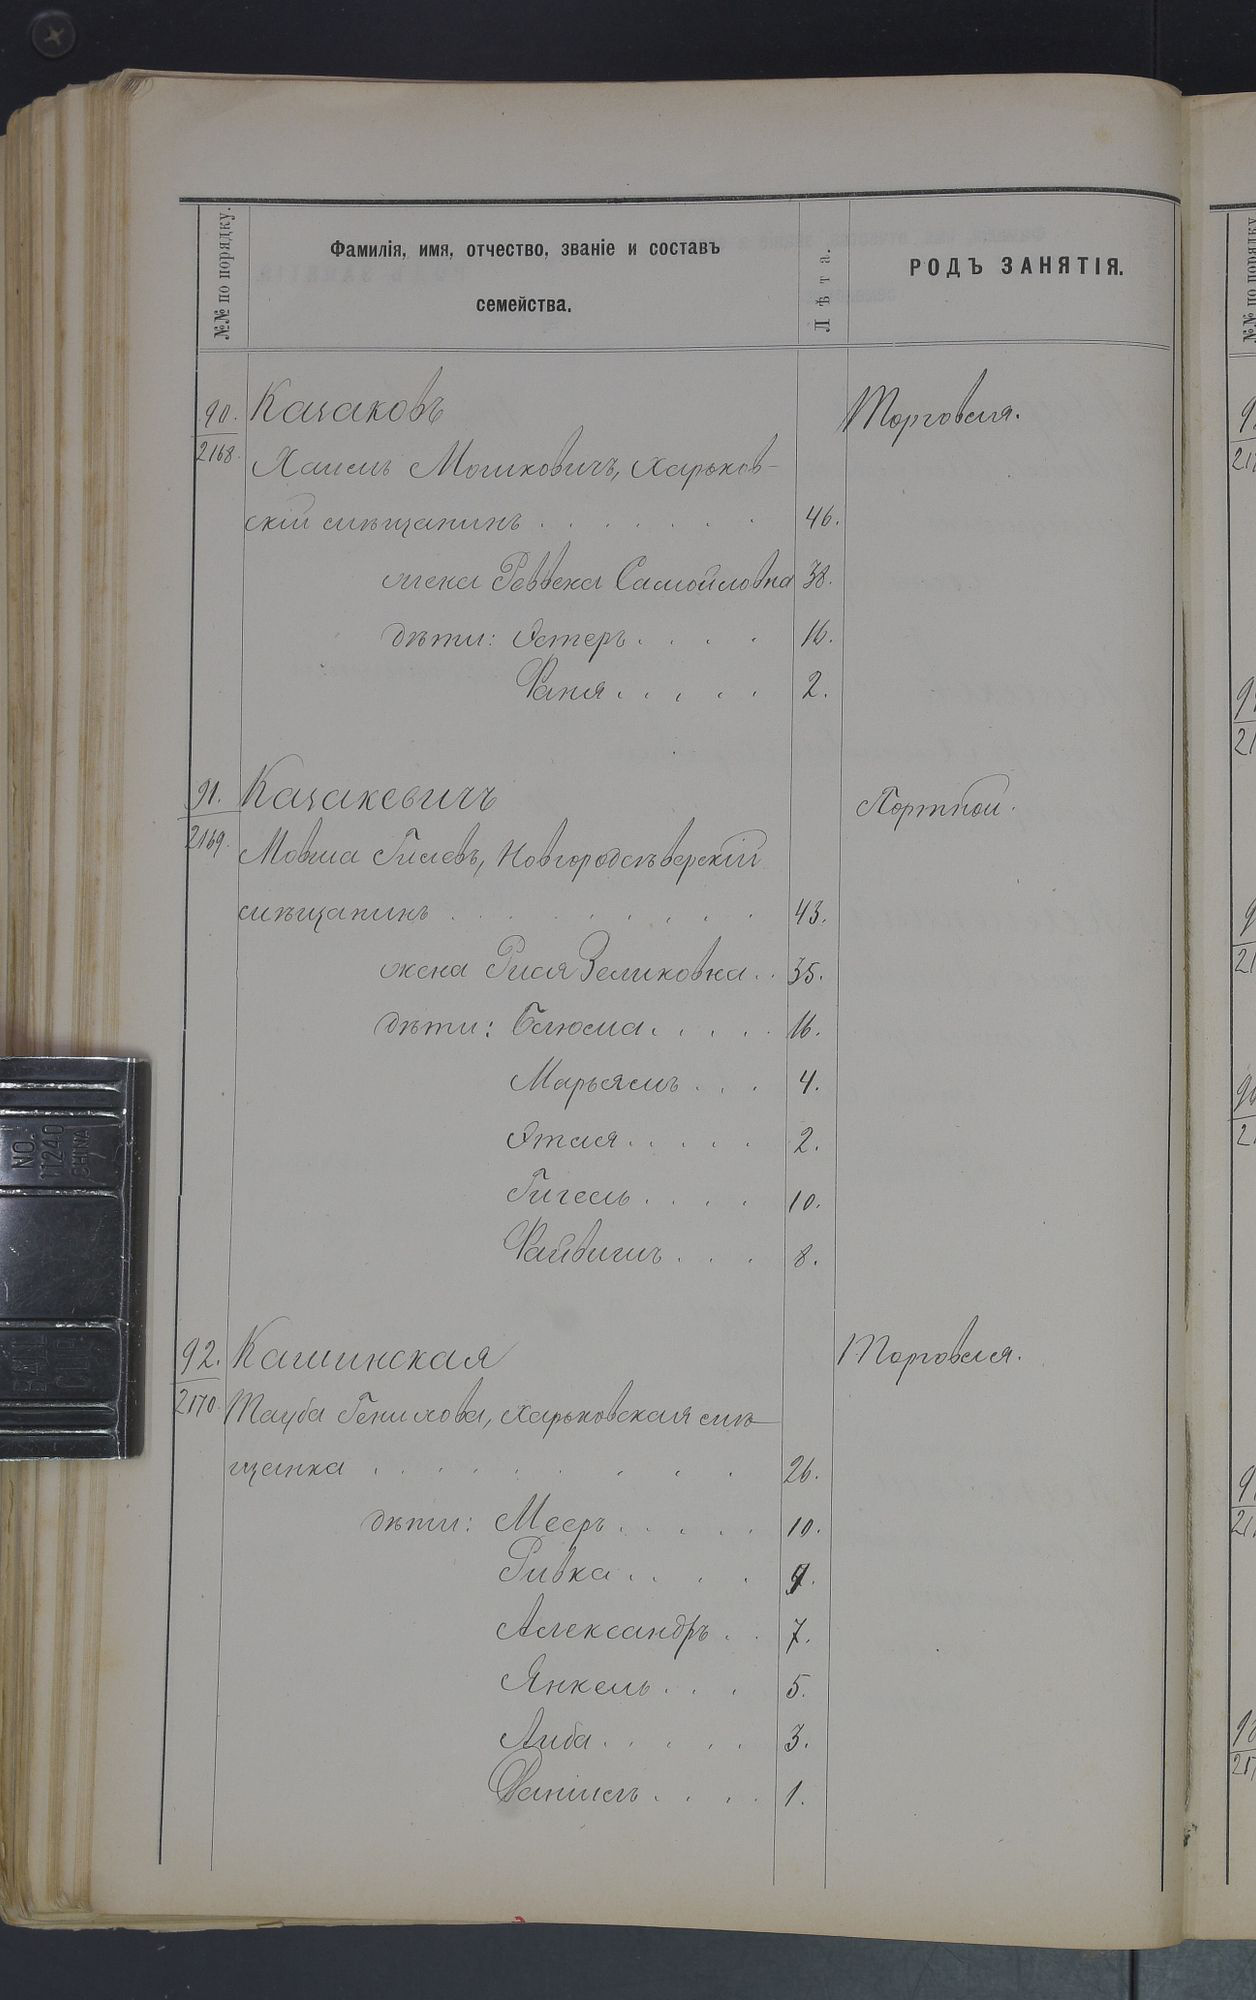 №№ по порядку.
Фамилія, имя, отчество, званіе и составъ
семейства.
Лѣта.
РОДЪ ЗАНЯТІЯ.
90. Казаковъ Торговля.
2168. Хаимъ Мошковичъ, Харьков-
скій мѣщанинъ . . . . . . . 46.
жена Ревека Самойловна 38.
дѣти: Эстеръ . . . . 16.
Фаня . . . . . 2.
91. Казакевичъ Портной.
2169. Мовша Гилевъ, Новгородсѣверскій
мѣщанинъ . . . . . . . . . 43.
жена Рися Зеликовна . . 35.
дѣти: Блюма . . . . . 16.
Марьямъ . . . 4.
Этля . . . . . 2.
Гигель . . . . 10.
Файвишъ . . . 8.
92. Кашинская Торговля.
2170. Тауба Генихова, Харьковская мѣ-
щанка . . . . . . . . . 26.
дѣти: Мееръ . . . . . 10.
Ривка . . . . 9.
Александръ . . 7.
Янкель . . . 5.
Либа . . . . . 3.
Даніилъ . . . . 1.
NO.
11240
CHINA